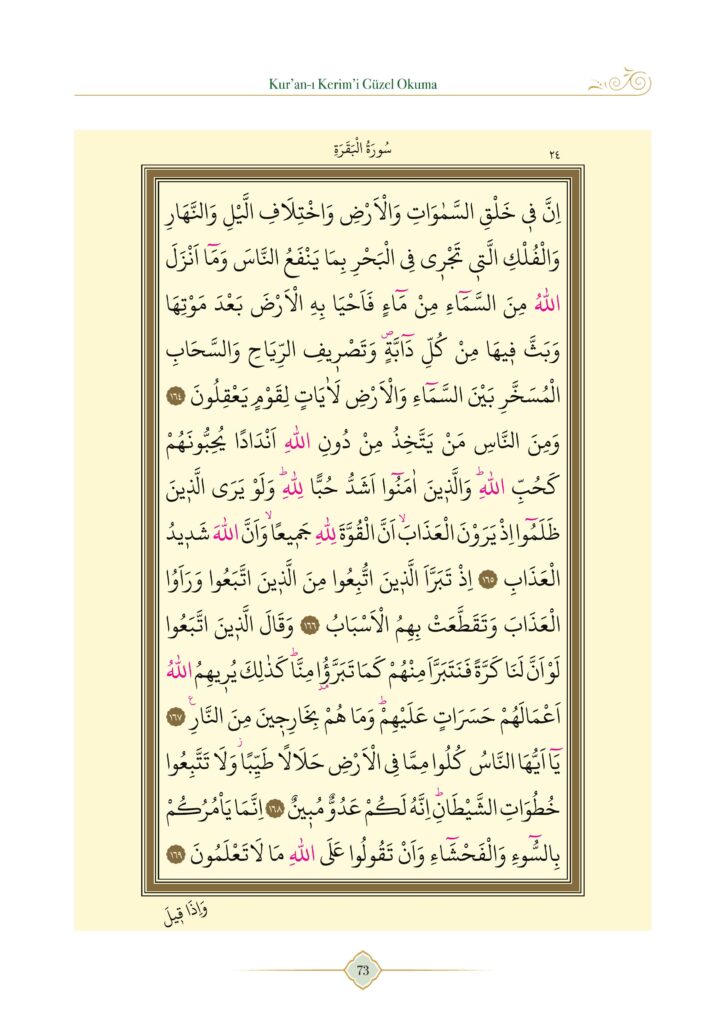 Kur’an-ı Kerim’i Güzel Okuma
سُورَةُ الْبَقَرَةِ ٢٤
اِنَّ ف۪ي خَلْقِ السَّمٰوَاتِ وَالْاَرْضِ وَاخْتِلَافِ الَّيْلِ وَالنَّهَارِ
وَالْفُلْكِ الَّت۪ي تَجْر۪ي فِي الْبَحْرِ بِمَا يَنْفَعُ النَّاسَ وَمَٓا اَنْزَلَ
اللّٰهُ مِنَ السَّمَٓاءِ مِنْ مَٓاءٍ فَاَحْيَا بِهِ الْاَرْضَ بَعْدَ مَوْتِهَا
وَبَثَّ ف۪يهَا مِنْ كُلِّ دَٓابَّةٍۖ وَتَصْر۪يفِ الرِّيَاحِ وَالسَّحَابِ
الْمُسَخَّرِ بَيْنَ السَّمَٓاءِ وَالْاَرْضِ لَاٰيَاتٍ لِقَوْمٍ يَعْقِلُونَ ﴿١٦٤﴾
وَمِنَ النَّاسِ مَنْ يَتَّخِذُ مِنْ دُونِ اللّٰهِ اَنْدَادًا يُحِبُّونَهُمْ
كَحُبِّ اللّٰهِۜ وَالَّذ۪ينَ اٰمَنُٓوا اَشَدُّ حُبًّا لِلّٰهِۜ وَلَوْ يَرَى الَّذ۪ينَ
ظَلَمُٓوا اِذْ يَرَوْنَ الْعَذَابَۙ اَنَّ الْقُوَّةَ لِلّٰهِ جَم۪يعًاۙ وَاَنَّ اللّٰهَ شَد۪يدُ
الْعَذَابِ ﴿١٦٥﴾ اِذْ تَبَرَّاَ الَّذ۪ينَ اتُّبِعُوا مِنَ الَّذ۪ينَ اتَّبَعُوا وَرَاَوُا
الْعَذَابَ وَتَقَطَّعَتْ بِهِمُ الْاَسْبَابُ ﴿١٦٦﴾ وَقَالَ الَّذ۪ينَ اتَّبَعُوا
لَوْ اَنَّ لَنَا كَرَّةً فَنَتَبَرَّاَ مِنْهُمْ كَمَا تَبَرَّؤُ۫ا مِنَّاۜ كَذٰلِكَ يُر۪يهِمُ اللّٰهُ
اَعْمَالَهُمْ حَسَرَاتٍ عَلَيْهِمْۜ وَمَا هُمْ بِخَارِج۪ينَ مِنَ النَّارِ۟ ﴿١٦٧﴾
يَٓا اَيُّهَا النَّاسُ كُلُوا مِمَّا فِي الْاَرْضِ حَلَالًا طَيِّبًاۘ وَلَا تَتَّبِعُوا
خُطُوَاتِ الشَّيْطَانِۜ اِنَّهُ لَكُمْ عَدُوٌّ مُب۪ينٌ ﴿١٦٨﴾ اِنَّمَا يَأْمُرُكُمْ
بِالسُّٓوءِ وَالْفَحْشَٓاءِ وَاَنْ تَقُولُوا عَلَى اللّٰهِ مَا لَا تَعْلَمُونَ ﴿١٦٩﴾
وَاِذَا ق۪يلَ
73